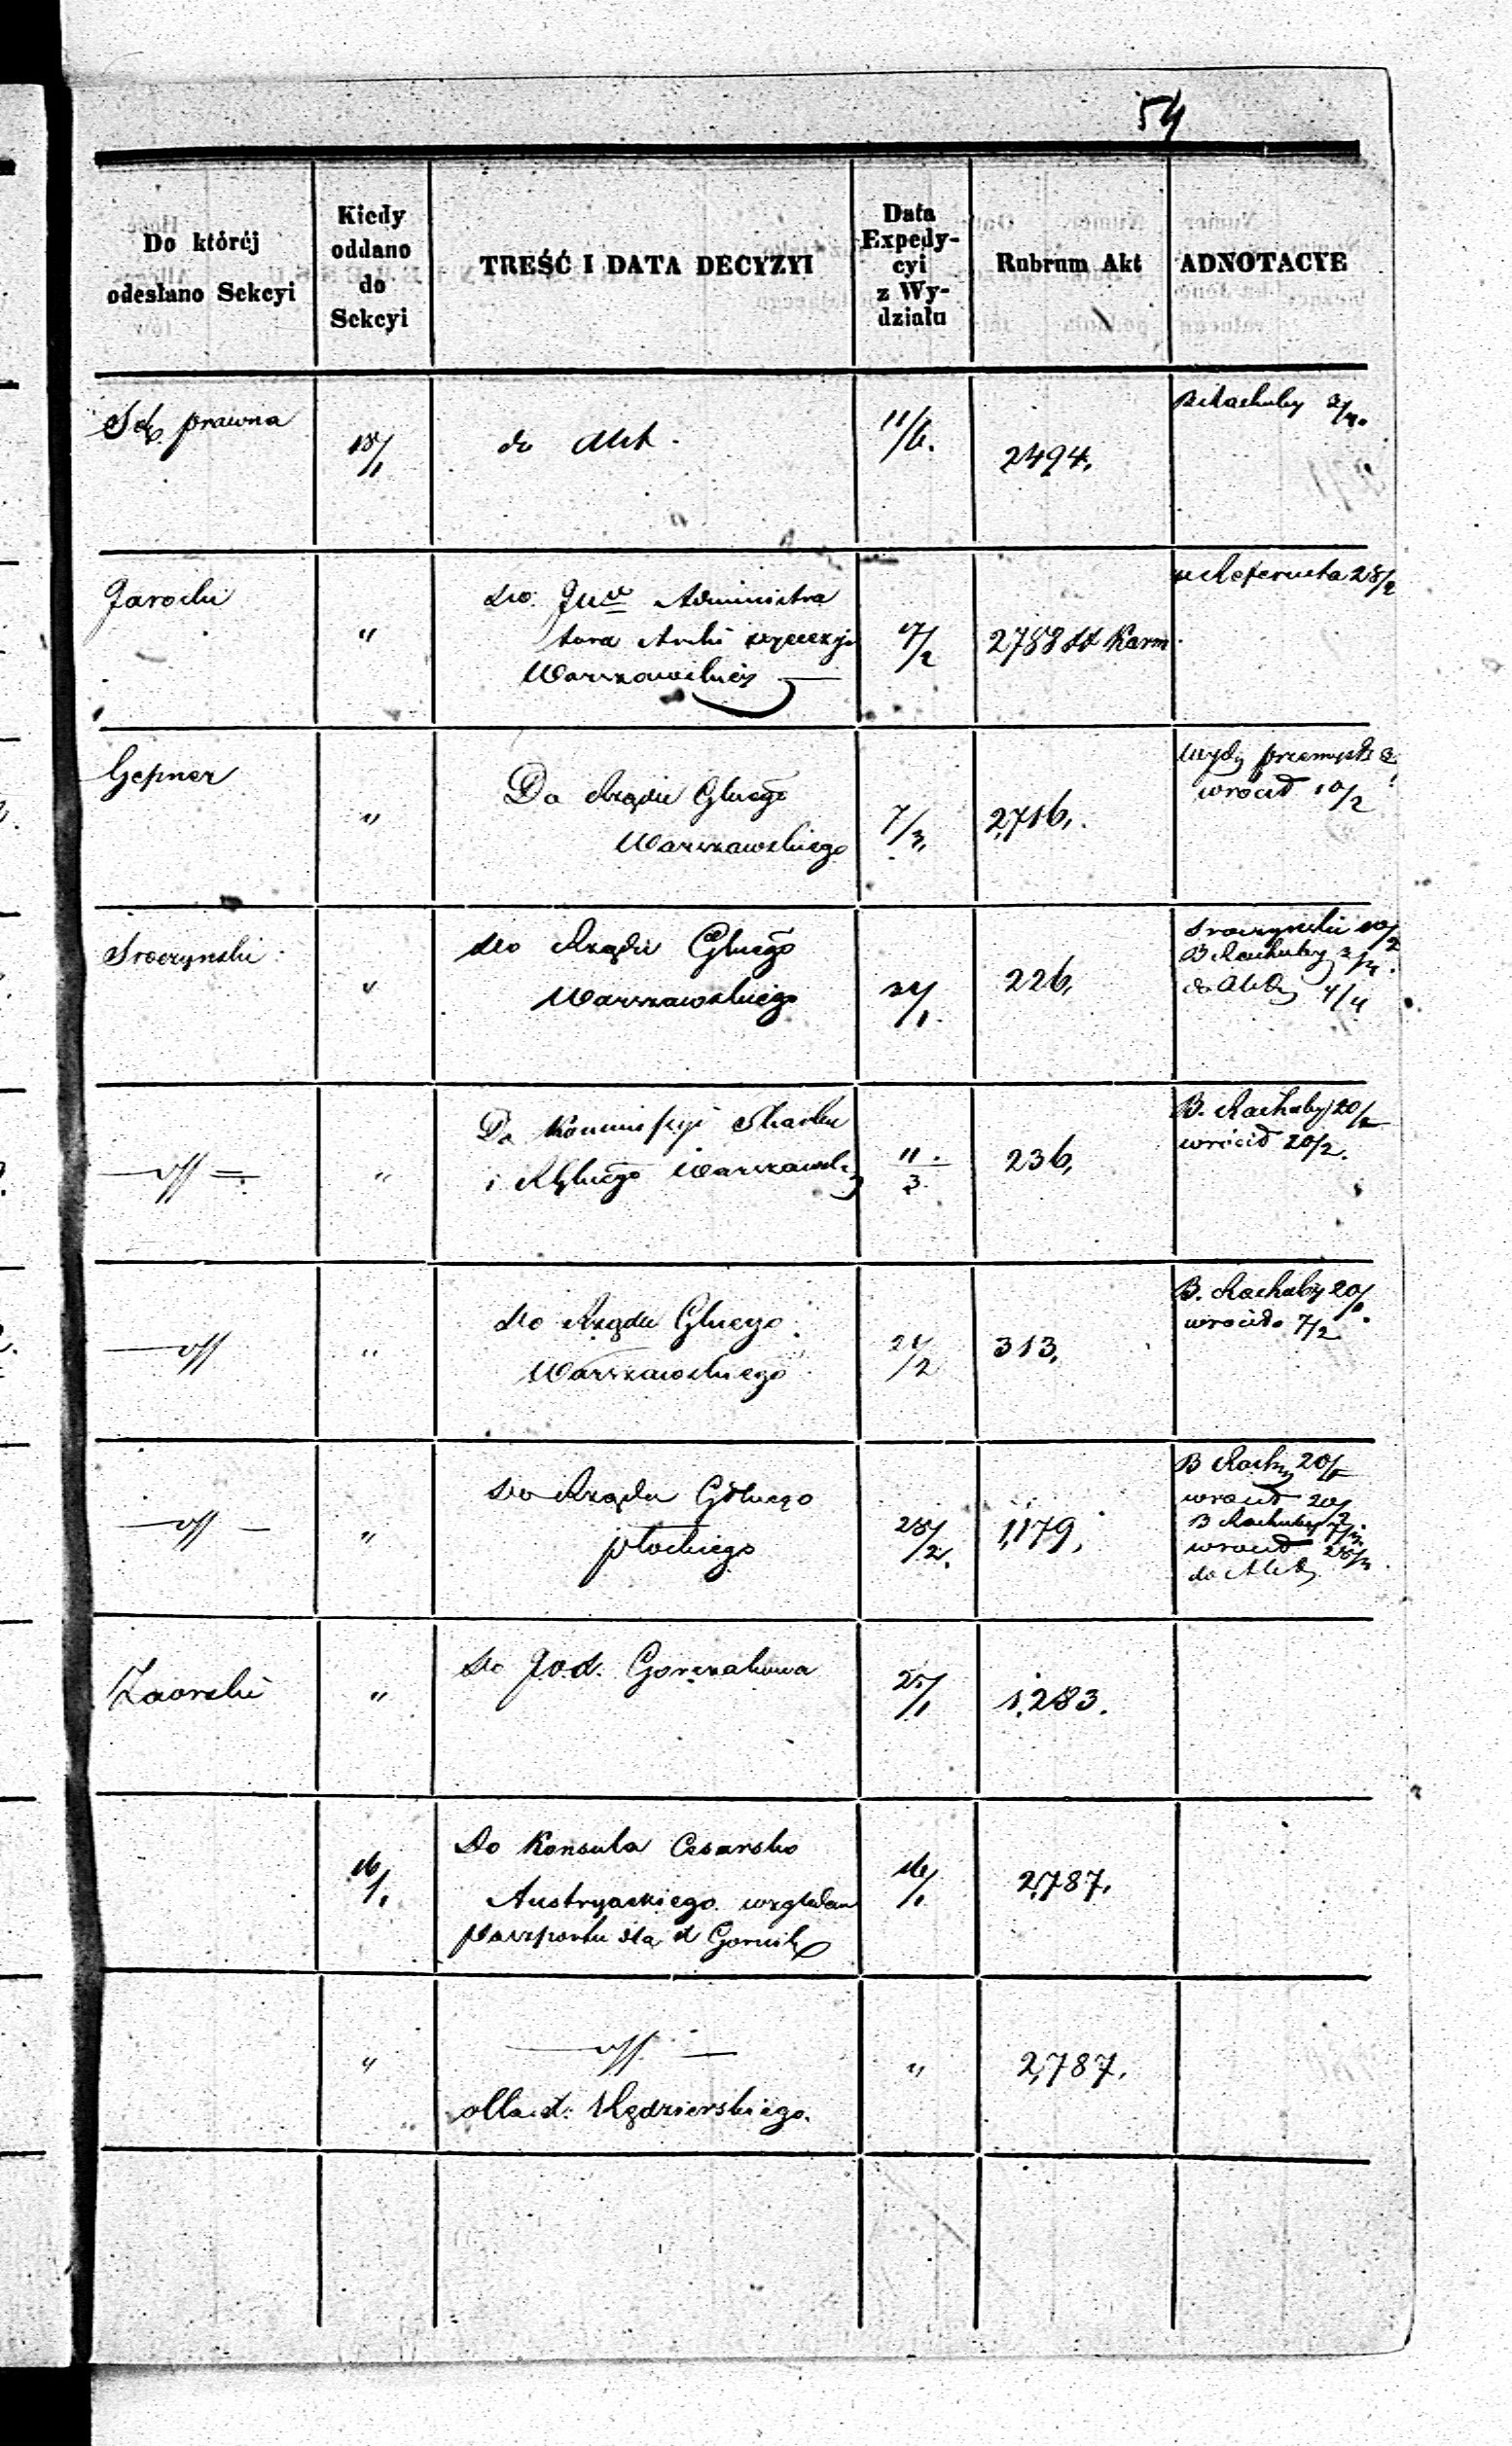 54
Do któréj odesłano Sekcyi
Kiedy oddano do Sekcyi
TREŚĆ I DATA DECYZYI
Data Expedy-cyi z Wy-działu
Rubrum Akt
ADNOTACYE
Sek prawna
18/1
do Akt.
11/6.
2494.
B Rachuby 2/4.
Jarocki
"
do Administra
tora Archi
Warszawskiej
17/2
2788 Karm
u Referenta 28/2
Gepner
"
Do Rządu Glnego
Warszawskiego
7/3
2,716.
Wydz przemysł
wrócił 10/2
Sroczynski
"
do Rządu Glnego
Warszawskiego
24/1.
226,
Sroczynski 10/2
B Rachuby 2/4.
do Akt 4/4
"
Do Kommissyi Skarbu
i RGlnego Warszawsk
11.
3
236,
B. Rachuby 20/1
wrócił 20/2.
"
do Rządu Glnego
Warszawskiego
24/2
313,
B. Rachuby 20/1
wróciło 7/2
"
do Rządu Glnego
płockiego
28/2.
1,179,
B Rach 20/1
wrócił 20/2
B Rachuby 7/3
wrócił 28/3
do Akt
Zaorski
"
do Gorczakowa
25/1
1,283.
16/1.
Do Konsula Cesarsko
Austryackiego względem
paszportu dla
16/1
2,787.
"
dla Kędzierskiego.
"
2,787.